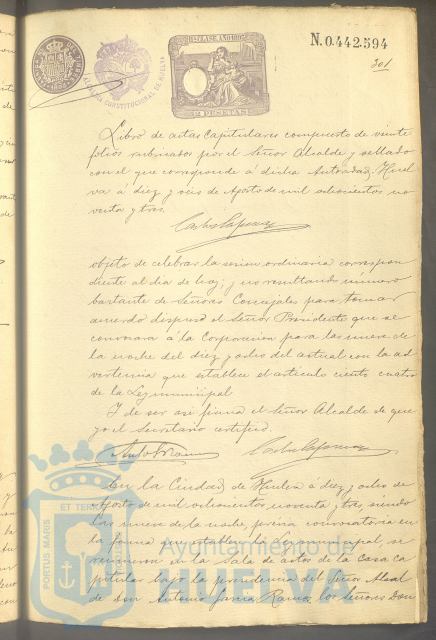 N.0.442.594
301
CLASE AÑO 1893
2 PESETAS
ALCALDIA CONSTITUCIONAL DE HUELVA
Libro de actas Capitulares compuesto de veinte
folios rubricados por el Señor Alcalde y sellado
con el que corresponde á dicha Autoridad. Huel
va á diez y seis de Agosto de mil ochocientos no
venta y tres.
objeto de celebrar la sesion ordinaria correspon
diente al dia de hoy; y no resultando número
bastante de Señores Concejales para tomar
acuerdo dispuso el Señor Presidente que se
convocara á la Corporacion para las nueve de
la noche del diez y ocho del actual con la ad
vertencia que establece el articulo ciento cuatro
de la Ley municipal
Y de ser asi firma el Señor Alcalde de que
yo el Secretario certifico.
En la Ciudad de Huelva á diez y ocho de
Agosto de mil ochocientos noventa y tres, siendo
las nueve de la noche, previa convocatoria en
la forma que establece la Ley municipal, se
reunieron en la Sala de actos de la Casa Ca
pitular bajo la presidencia del Señor Alcal
de Don Antonio Garcia Ramos los Señores Don
PORTUS MARIS ET TERRAE
Ayuntamiento de
HUELVA